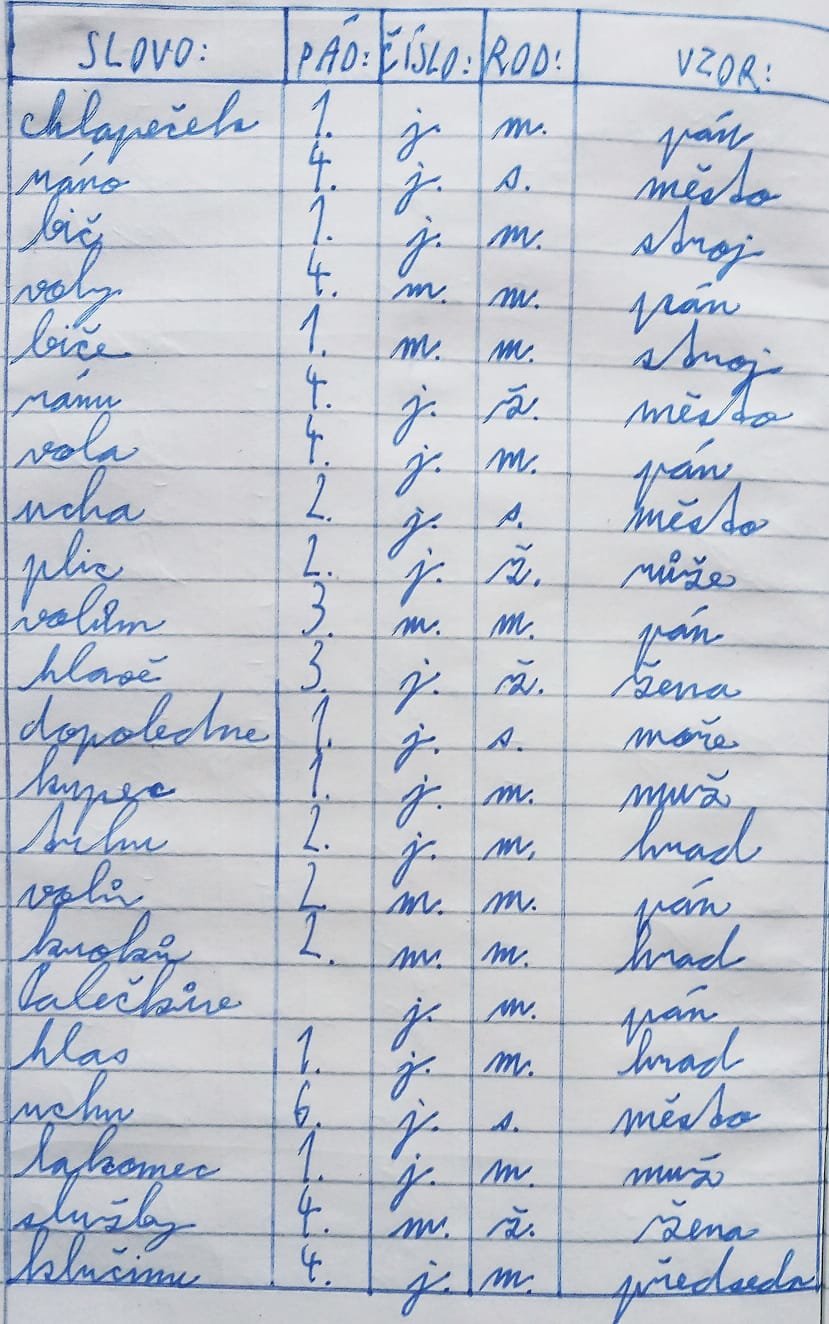 SLOVO: PÁD: ČÍSLO: ROD: VZOR:
chlapeček 1. j. m. pán
ráno 4. j. s. město
bič 1. j. m. stroj
voly 4. m. m. pán
biče 1. m. m. stroj
ránu 4. j. ž. město
vola 4. j. m. pán
ucha 2. j. s. město
plic 2. j. ž. růže
volům 3. m. m. pán
hlavě 3. j. ž. žena
dopoledne 1. j. s. moře
kupec 1. j. m. muž
trhu 2. j. m. hrad
volů 2 m. m. pán
kroků 2. m. m. hrad
Palečkův j. m. pán
hlas 1. j. m. hrad
uchu 6. j. s. město
lakomec 1. j. m. muž
služby 4. m. ž. žena
klučinu 4. j. m. předseda